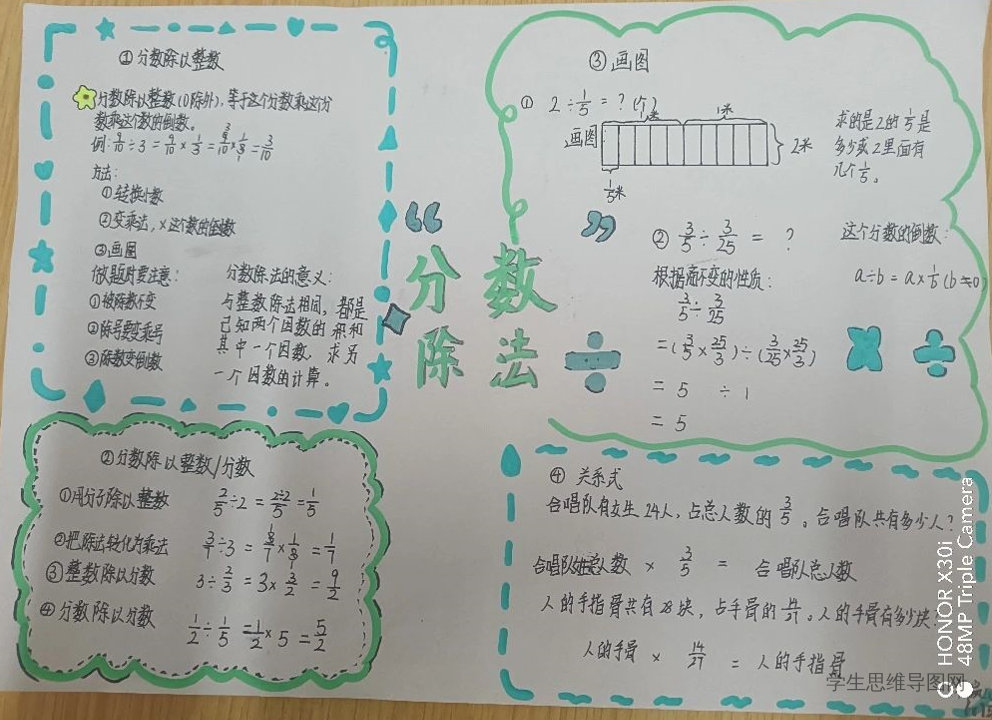 ①分数除以整数
分数除以整数(0除外),等于这个分数乘这个分
数乘这个数的倒数。
例:9/10÷3=9/10×1/3=9/10×1/3=3/10
方法:
①转换小数
②变乘法,×这个数的倒数
③画图
做题时要注意:
①被除数不变
②除号要变乘号
③除数变倒数
分数除法的意义:
与整数除法相同,都是
已知两个因数的积和
其中一个因数,求另
一个因数的计算。
②分数除以整数/分数
①用分子除以整数 2/5÷2=2÷2/5=1/5
②把除法转化为乘法 3/7÷3=3/7×1/3=1/7
③整数除以分数 3÷2/3=3×3/2=9/2
④分数除以分数 1/2÷1/5=1/2×5=5/2
“分数”
除法 ÷
③画图
① 2÷1/5=?(个)
1米 1米
画图 2米
1/5米
求的是2的1/5是
多少或2里面有
几个1/5。
② 3/5÷3/25=?
这个分数的倒数:
a÷b=a×1/b(b≠0)
根据商不变的性质:
3/5÷3/25
=(3/5×25/3)÷(3/25×25/3)
=5 ÷1
=5
× ÷
④ 关系式
合唱队有女生24人,占总人数的3/5。合唱队共有多少人?
合唱队总人数 × 3/5 = 合唱队总人数
人的手指骨共有28块,占手骨的14/27。人的手骨有多少块?
人的手骨 × 14/27 = 人的手指骨
HONOR X30i
48MP Triple Camera
学生思维导图网